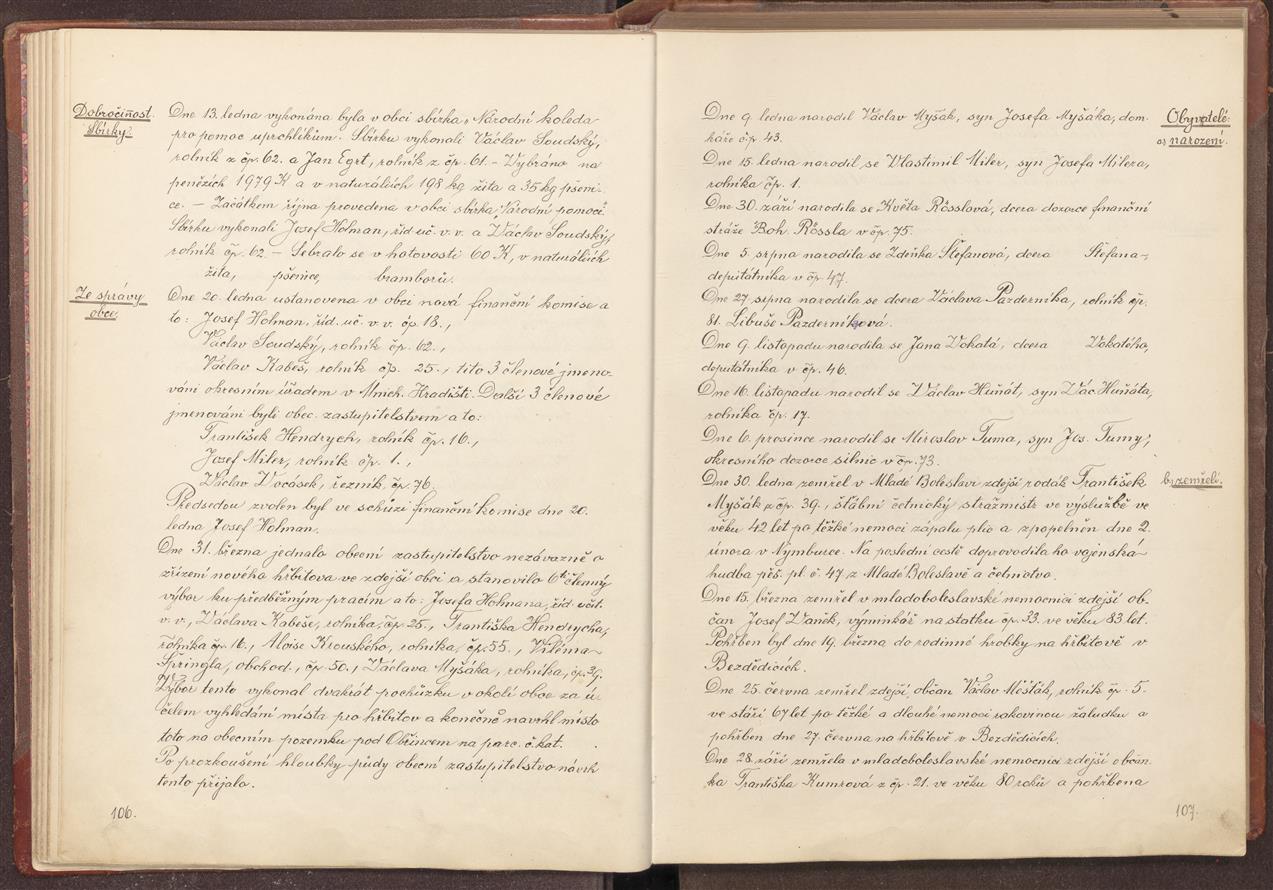 Dobročinnost.
Sbírky.
Dne 13. ledna vykonána byla v obci sbírka „Národní koleda
pro pomoc uprchlíkům. Sbírku vykonali Václav Soudský,
rolník z čp. 62. a Jan Egrt, rolník z čp. 61. – Vybráno na
penězích 1979 K a v naturáliích 198 kg žita a 35 kg pšeni-
ce. – Začátkem října provedena v obci sbírka „Národní pomoci“.
Sbírku vykonali Josef Hofman, říd. uč. v. v. a Václav Soudský,
rolník čp. 62 – Sebralo se v hotovosti 60 K, v naturáliích
žita, pšenice, bramborů.
Ze správy
obce.
Dne 20. ledna ustanovena v obci nová finanční komise a
to: Josef Hofman, říd. uč. v. v. čp. 18.,
Václav Soudský, rolník čp. 62.,
Václav Kabeš, rolník čp. 25., tito 3 členové jmeno-
váni okresním úřadem v Mnich. Hradišti. Další 3 členové
jmenováni byli obec. zastupitelstvem a to:
František Hendrych, rolník čp. 16.,
Josef Miler, rolník čp. 1.,
Václav Vocásek, řezník čp. 76.
Předsedou zvolen byl ve schůzi finanční komise dne 20.
ledna Josef Hofman.
Dne 31. března jednalo obecní zastupitelstvo nezávazně o
zřízení nového hřbitova ve zdejší obci a stanovilo 6ti členný
výbor ku předběžným pracím a to: Josefa Hofmana, říd. učit.
v. v., Václava Kabeše, rolníka, čp. 25., Františka Hendrycha,
rolníka čp. 16., Aloise Krouského, rolníka, čp. 55., Viléma
Špringla, obchod., čp. 50., Václava Myšáka, rolníka, čp. 39.
Výbor tento vykonal dvakrát pochůzku v okolí obce za ú-
čelem vyhledání místa pro hřbitov a konečně navrhl místo
toto na obecním pozemku pod Obřincem na parc. č. kat. .
Po prozkoušení hloubky půdy obecní zastupitelstvo návrh
tento přijalo.
106.
Obyvatelé:
a) narození.
Dne 9. ledna narodil Václav Myšák, syn Josefa Myšáka, dom-
káře čp. 43.
Dne 15. ledna narodil se Vlastimil Miler, syn Josefa Milera,
rolníka čp. 1.
Dne 30. září narodila se Květa Rösslová, dcera dozorce finanční
stráže Boh. Rössla v čp. 75.
Dne 5. srpna narodila se Zdeňka Štefanová, dcera Štefana,
deputátníka v čp. 47.
Dne 27. srpna narodila se dcera Václava Pazderníka, rolník čp.
81. Libuše Pazderníková.
Dne 9. listopadu narodila se Jana Vokatá, dcera Vokatého,
deputátníka v čp. 46.
Dne 16. listopadu narodil se Václav Huňát, syn Vác. Huňáta,
rolníka čp. 17.
Dne 6. prosince narodil se Miroslav Tuma, syn Jos. Tumy,
okresního dozorce silnic v čp. 73.
b) zemřelí.
Dne 30. ledna zemřel v Mladé Boleslavi zdejší rodák František
Myšák z čp. 39., štábní četnický strážmistr ve výslužbě ve
věku 42 let po těžké nemoci zápalu plic a zpopelněn dne 2.
února v Nymburce. Na poslední cestě doprovodila ho vojenská
hudba pěš. pl. č. 47 z Mladé Boleslavě a četnictvo.
Dne 15. března zemřel v mladoboleslavské nemocnici zdejší ob-
čan Josef Daněk, výminkář na statku čp. 33. ve věku 83 let.
Pohřben byl dne 19. března do rodinné hrobky na hřbitově v
Bezdědicích.
Dne 25. června zemřel zdejší občan Václav Měšťák, rolník čp. 5.
ve stáří 67 let po těžké a dlouhé nemoci rakovinou žaludku a
pohřben dne 27. června na hřbitově v Bezdědicích.
Dne 28. září zemřela v mladoboleslavské nemocnici zdejší občan-
ka Františka Kumrová z čp. 21. ve věku 80 roků a pohřbena
107.